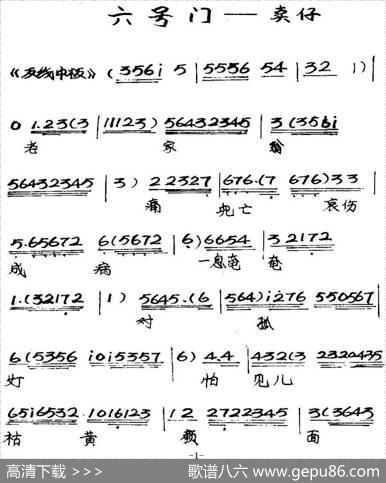 六号门——卖仔
《反线中板》(356i 5 | 5556 54 | 32 1) |
0 1.23(3 | 111123) 56432345 | 3 (356i
老 家 翁
56432345 | 3) 2 2327 | 676.(7 676)33 |
痛 兇亡 哀伤
5.65672 6(5672 | 6)6654 | 3 2172
成 病 一息奄 奄
1.(32172 | 1) 5645.(6 | 564)i276 550567
对 孤
6(5356 i0i5357 | 6) 4.4 | 432(3 2320435
灯 怕 见儿
65i6532 1016123 | 12 2722345 | 3(3643
枯 黄 颜 面
-1-
高清下载 >>>
歌谱八六 www.gepu86.com